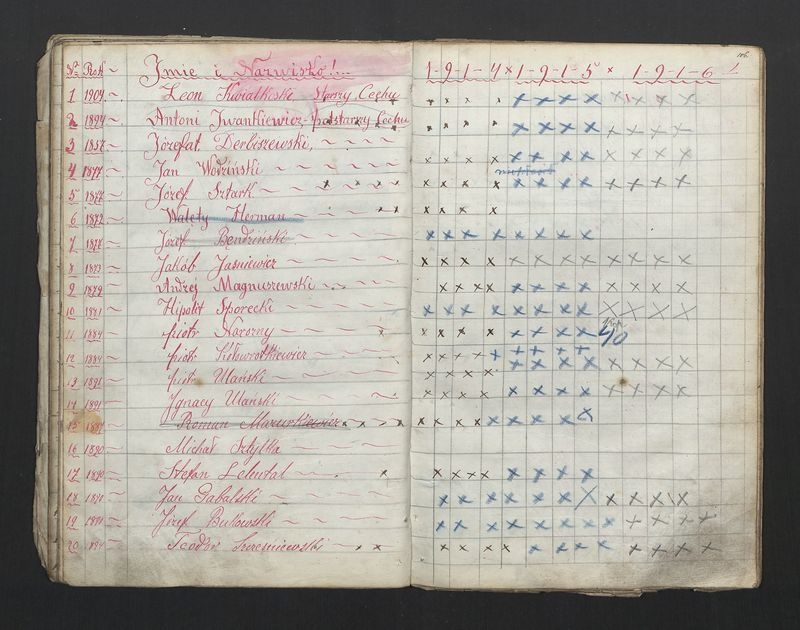 106.
No Rok Imie i Nazwisko!... 1-9-1-4 × 1-9-1-5 × 1-9-1-6
1 1904. Leon Kwiatkoski Starszy Cechu × × × × × × × × × × × ×
2 1894 Antoni Iwankiewicz - podstarszy Cechu × × × × × × × × × × × ×
3 1857 Józefat Derbiszewski,
4 1877 Jan Wodziński × × × × × × × × × × × ×
5 1877 Józef Sztark × × × × × × × × × × × ×
6 1872 Walety Herman × × × ×
7 1877 Józef Będziński × × × × × × × ×
8 1873 Jakób Jaśniewicz × × × × × × × × × × × ×
9 1879 Andrzej Magnuszewski × × × × × × × × × × × ×
10 1881 Hipolit Sporecki × × × × × × × × × × × ×
11 1884 piotr Nawrzny × × × × × × × ×
12 1884 piotr
13 1891 piotr Ulański
14 1891 Ignacy Ulański × × × × × × × × × × × ×
15 Roman Mazurkiewicz × × × × × × × × ×
16 1890 Michał Sztylka
17 1890 Stefan Lelental × × × × × × × ×
18 1890 Jan Dabalski × × × × × × × × × × × ×
19 Józef Butowski × × × × × × × × × × × ×
20 Teodor × × × × × × × × × × × ×